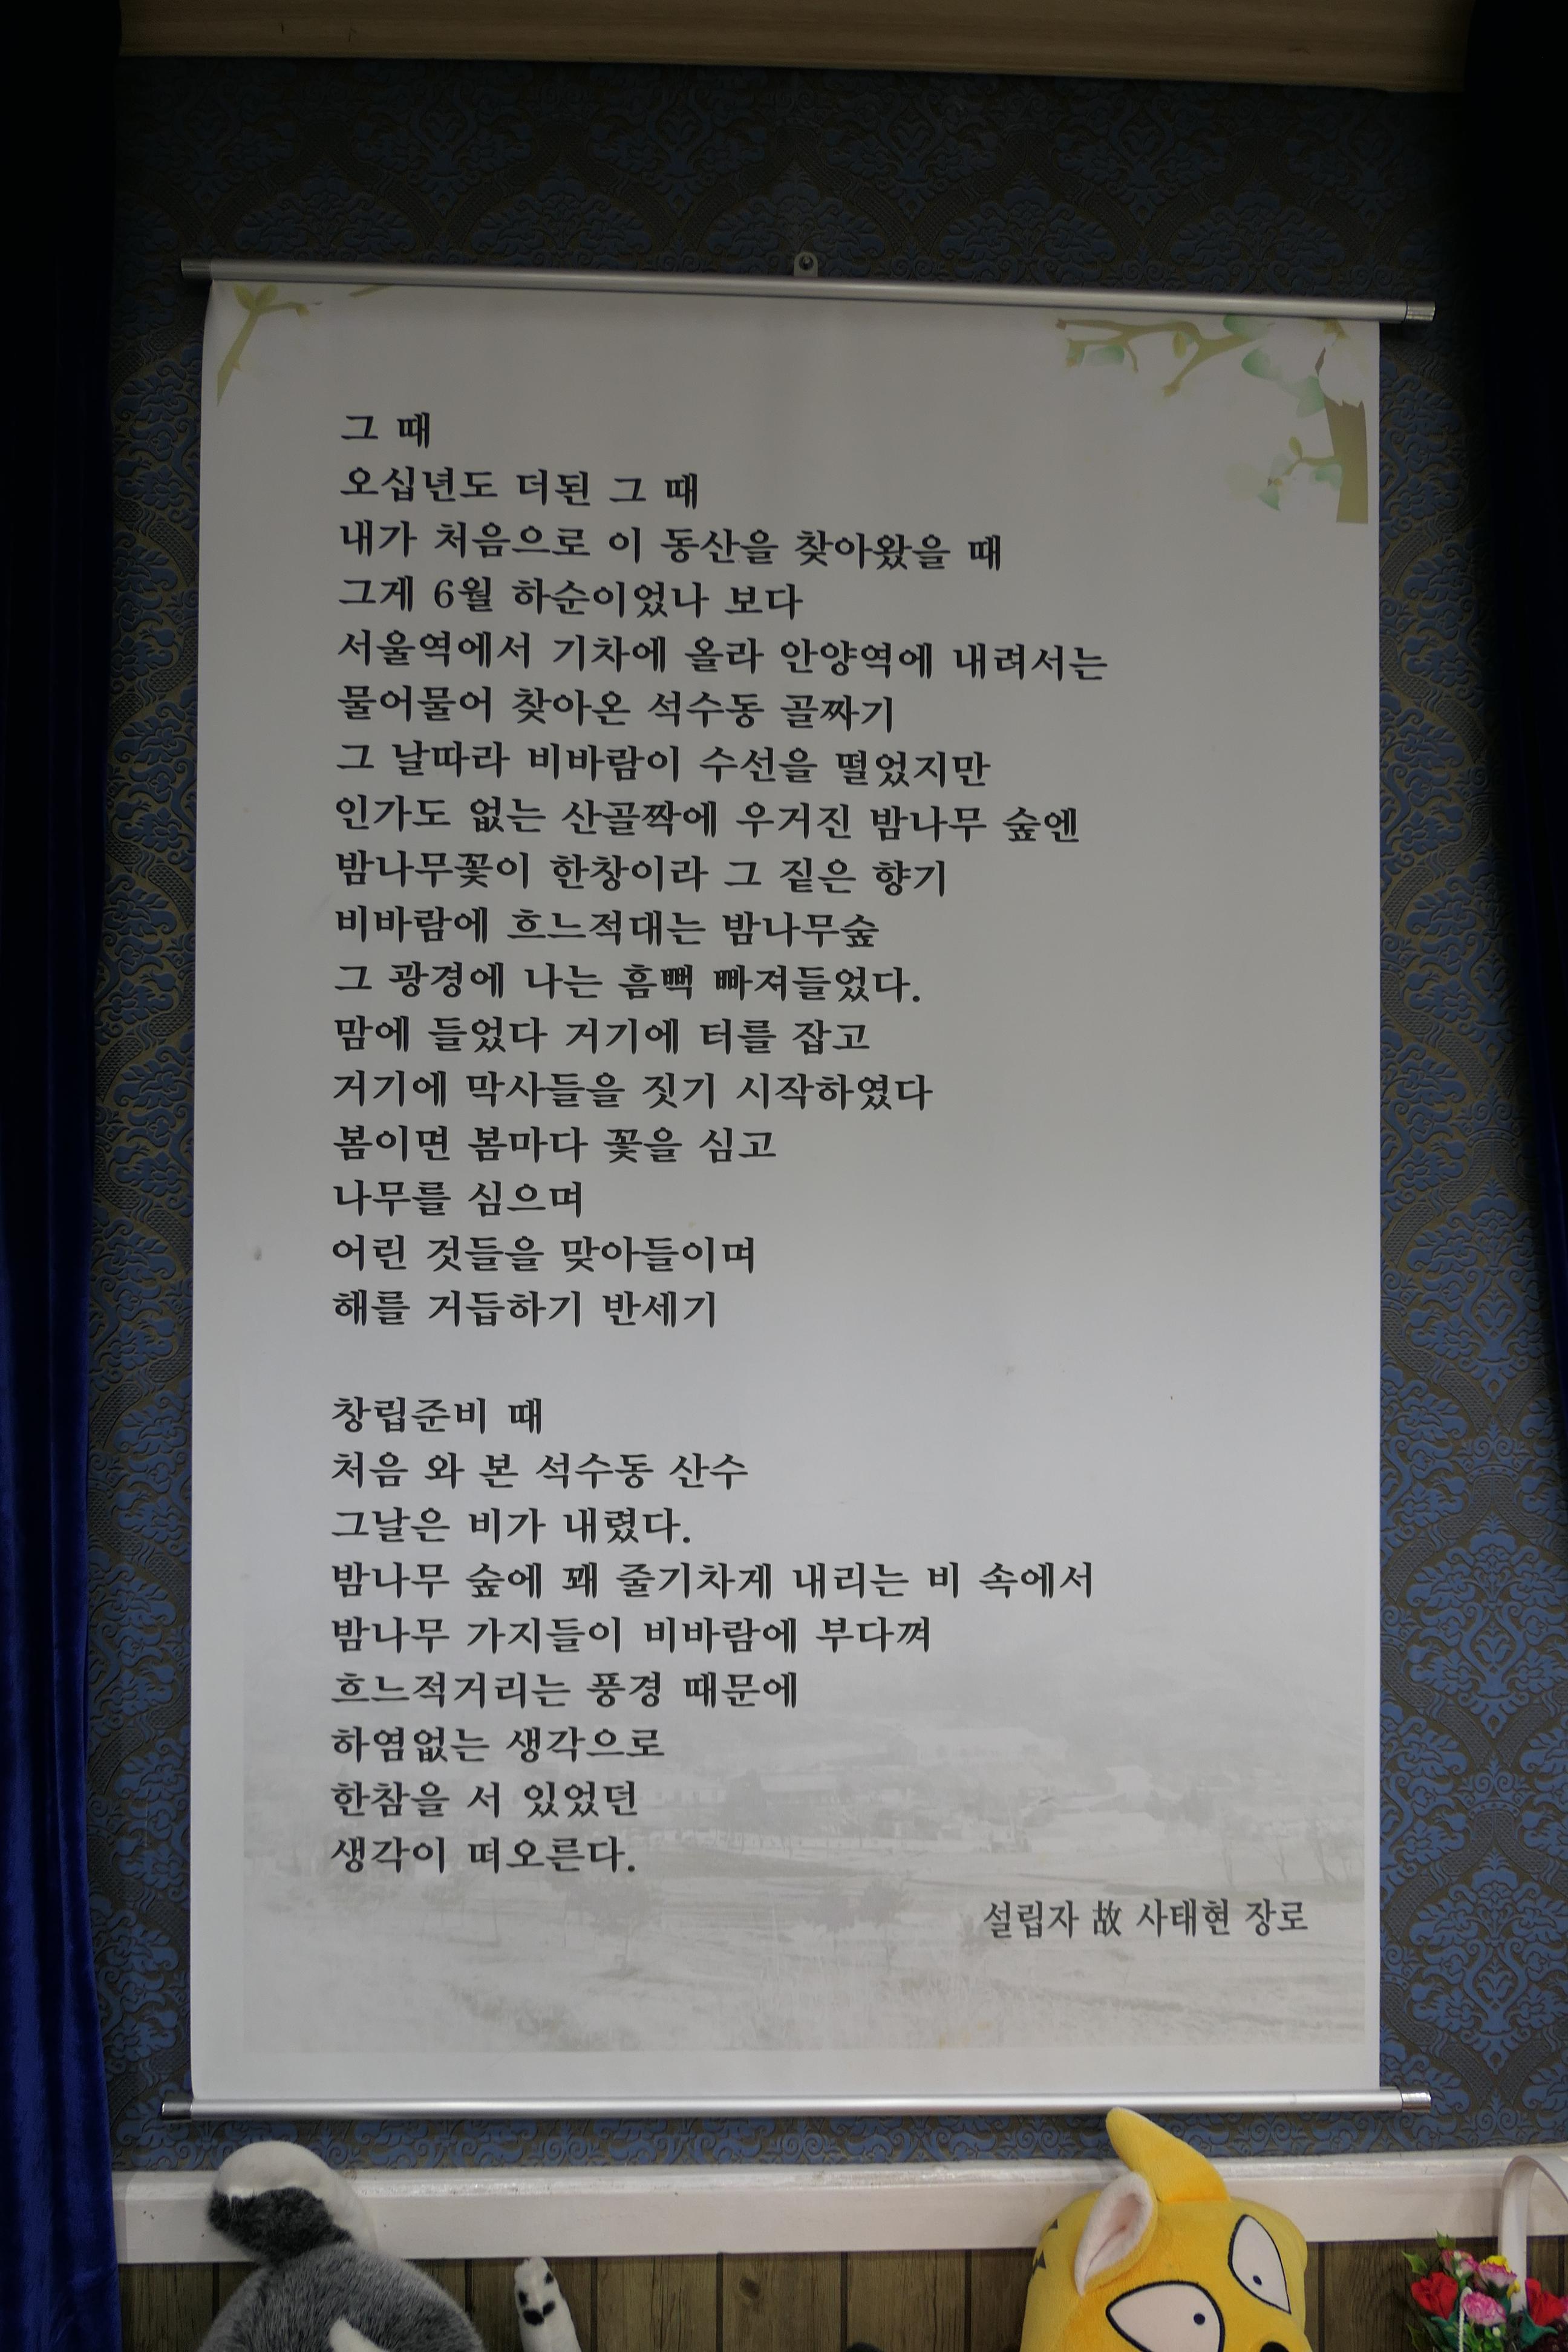 그 때
오십년도 더된 그 때
내가 처음으로 이 동산을 찾아왔을 때
그게 6월 하순이었나 보다
서울역에서 기차에 올라 안양역에 내려서는
물어물어 찾아온 석수동 골짜기
그 날따라 비바람이 수선을 떨었지만
인가도 없는 산골짝에 우거진 밤나무 숲엔
밤나무꽃이 한창이라 그 짙은 향기
비바람에 흐느적대는 밤나무숲
그 광경에 나는 흠뻑 빠져들었다.
맘에 들었다 거기에 터를 잡고
거기에 막사들을 짓기 시작하였다
봄이면 봄마다 꽃을 심고
나무를 심으며
어린 것들을 맞아들이며
해를 거듭하기 반세기
창립준비 때
처음 와 본 석수동 산수
그날은 비가 내렸다.
밤나무 숲에 꽤 줄기차게 내리는 비 속에서
밤나무 가지들이 비바람에 부다껴
흐느적거리는 풍경 때문에
하염없는 생각으로
한참을 서 있었던
생각이 떠오른다.
설립자 故 사태현 장로